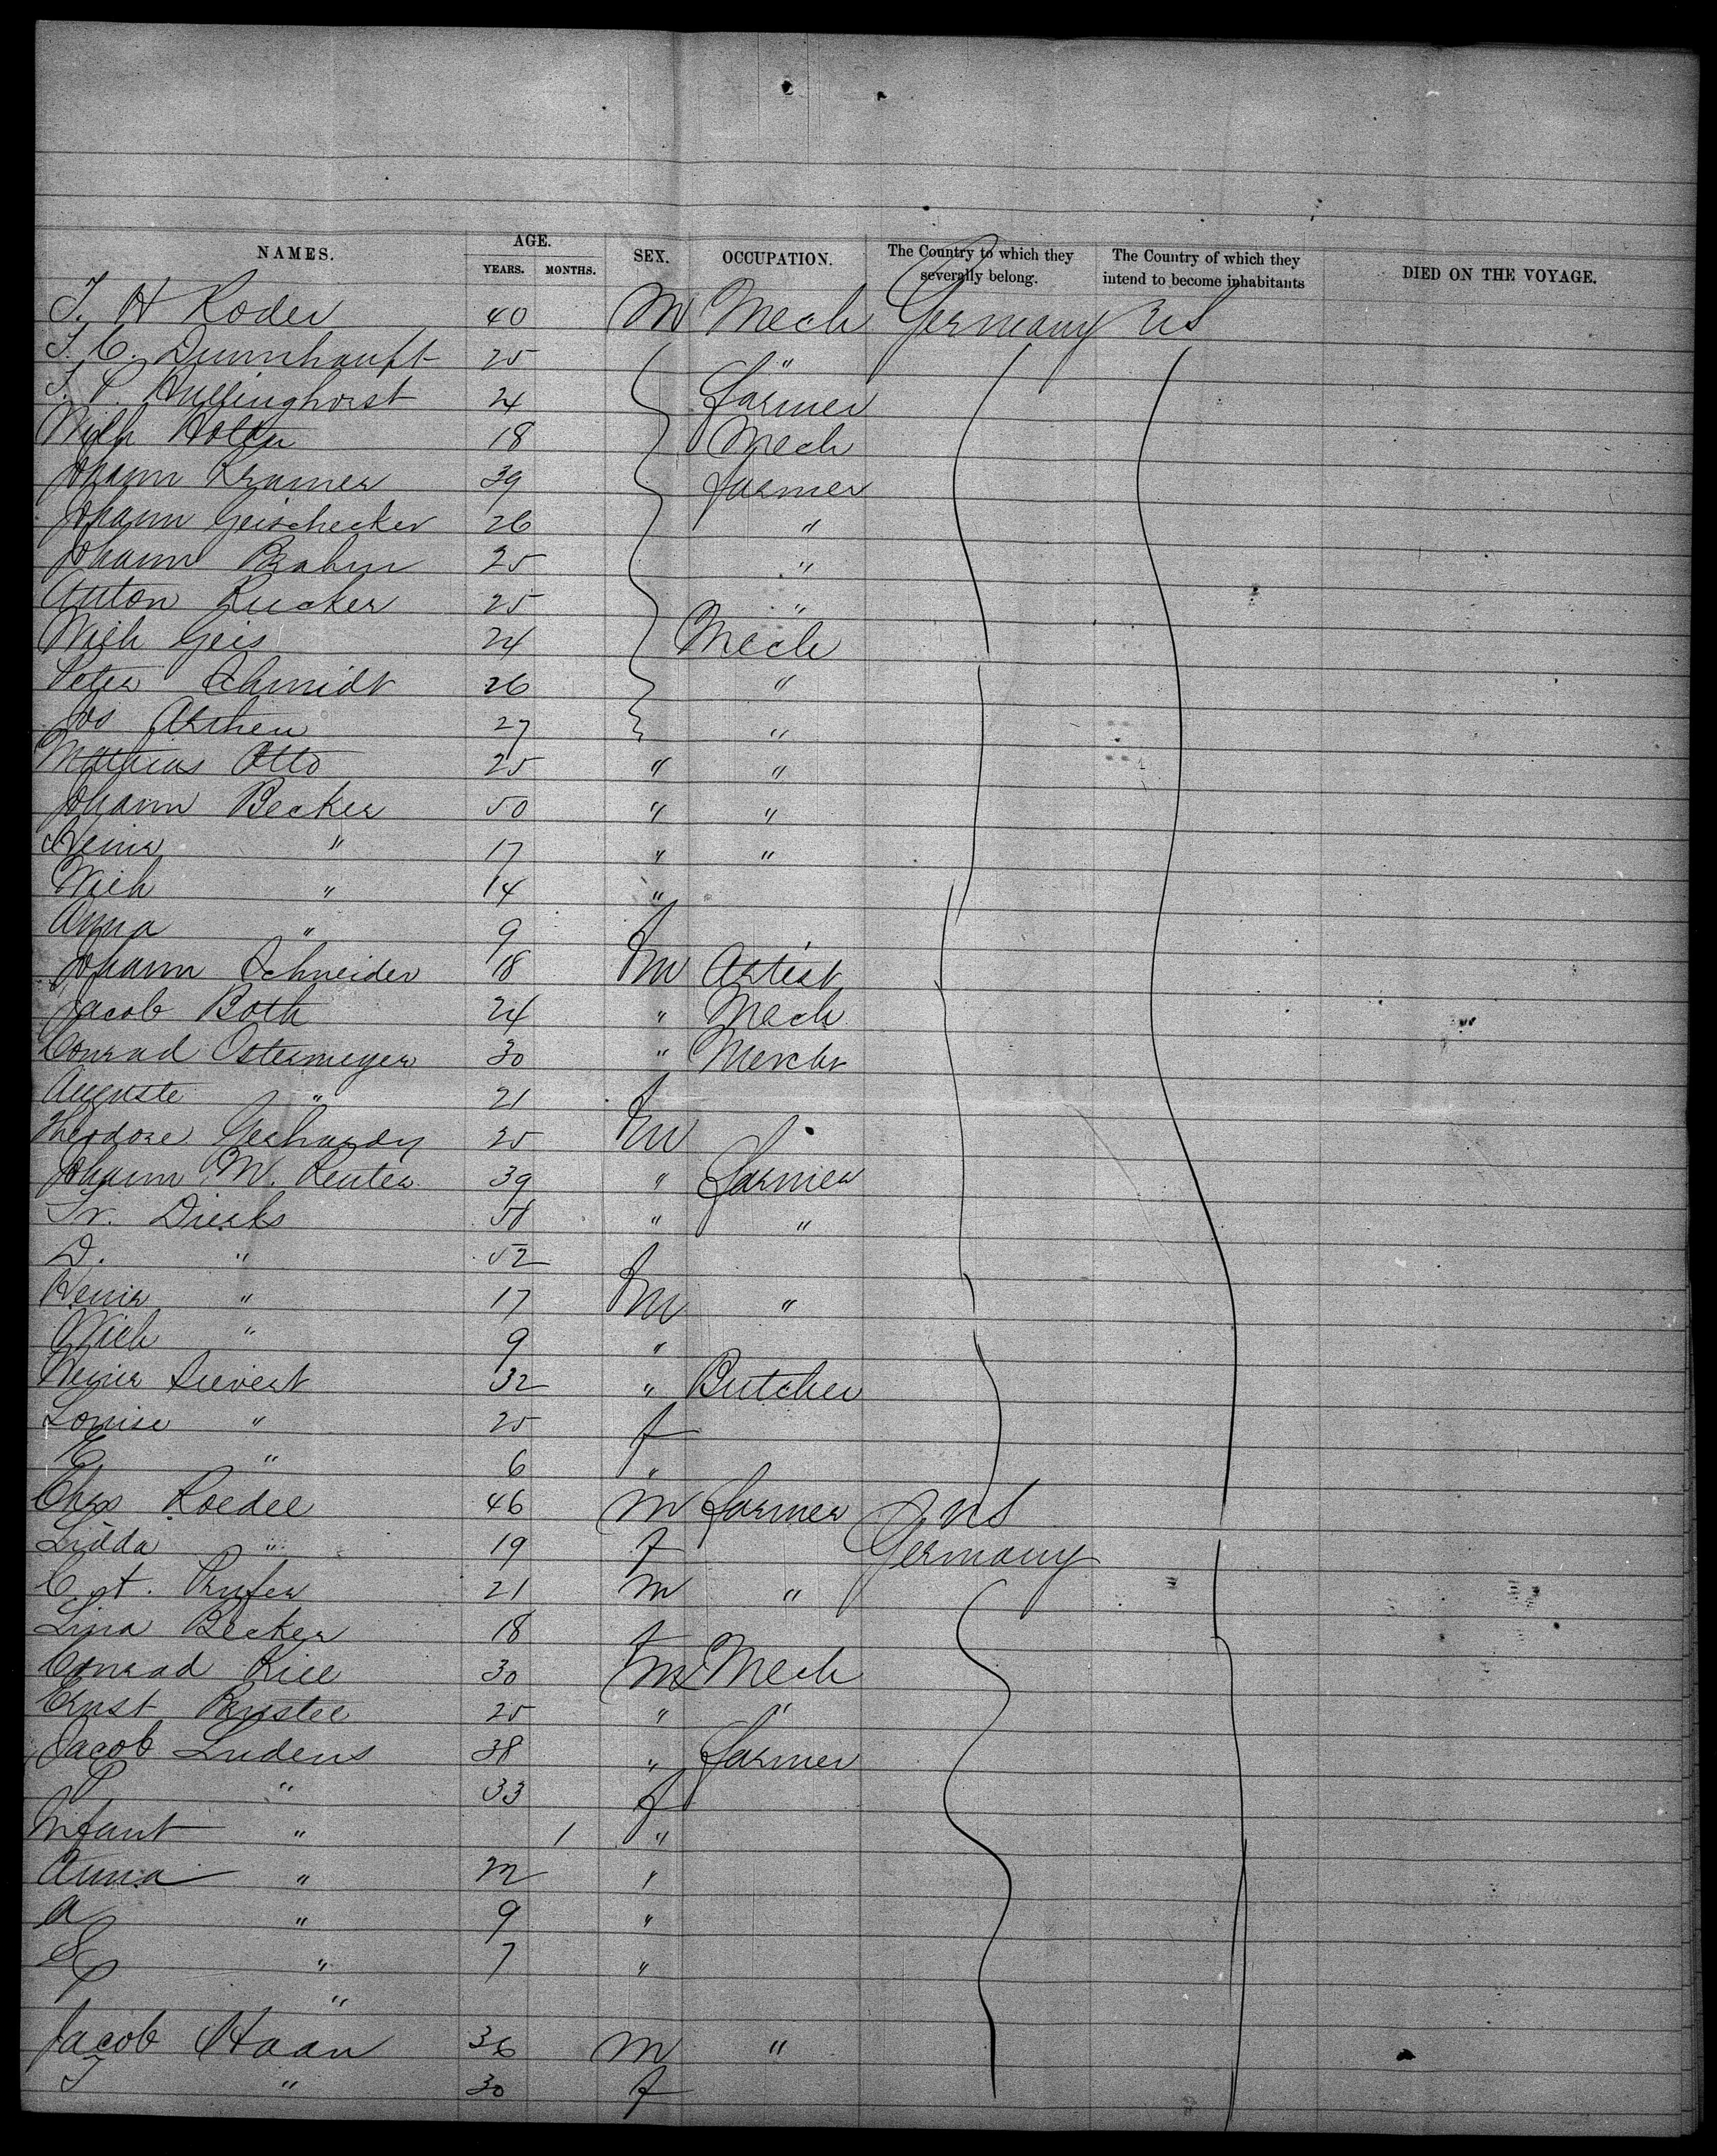 NAMES. AGE. YEARS. MONTHS. SEX. OCCUPATION. The Country to which they severally belong. The Country of which they intend to become inhabitants DIED ON THE VOYAGE.
J. H Roder 40 M Mech Germany US
J. C. Dunnhaupt 25 "
J. P. Hullinghorst 24 Farmer
Wilh Holtn 18 Mech
Johann Kramer 39 farmer
Johann Geischecker 26 "
Johann Brahm 25 "
Anton Rucker 25 "
Wilh Geis 24 Mech
Peter Schmidt 26 "
Jos Arthen 27 "
Mathias Otto 25 " "
Johann Becker 50 " "
Heinr " 17 " "
Wilh " 14 "
Anna " 9 f
Johann Schneider 18 m Artist
Jacob Both 24 " Mech
Conrad Ostermeyer 30 " Mercht
Auguste " 21 f
Theodore Gerhardy 25 m
Johann M. Reuter 39 " Farmer
Fr. Dierks 51 " "
D. " 52 f
Heinr " 17 m "
Wilh " 9 "
Heinr Sievert 32 " Butcher
Louise " 25 f
E " 6 "
Chas Roedel 46 M Farmer US
Lidda " 19 f Germany
C. A. Prufer 21 m "
Lina Becker 18 f
Conrad Kill 30 m Mech
Ernst 25 " "
Jacob Ludens 38 " Farmer
P " 33 f
Infant " 1 "
Anna " "
A " 9 "
S " 7 "
"
Jacob Haan 36 M "
J " 30 f